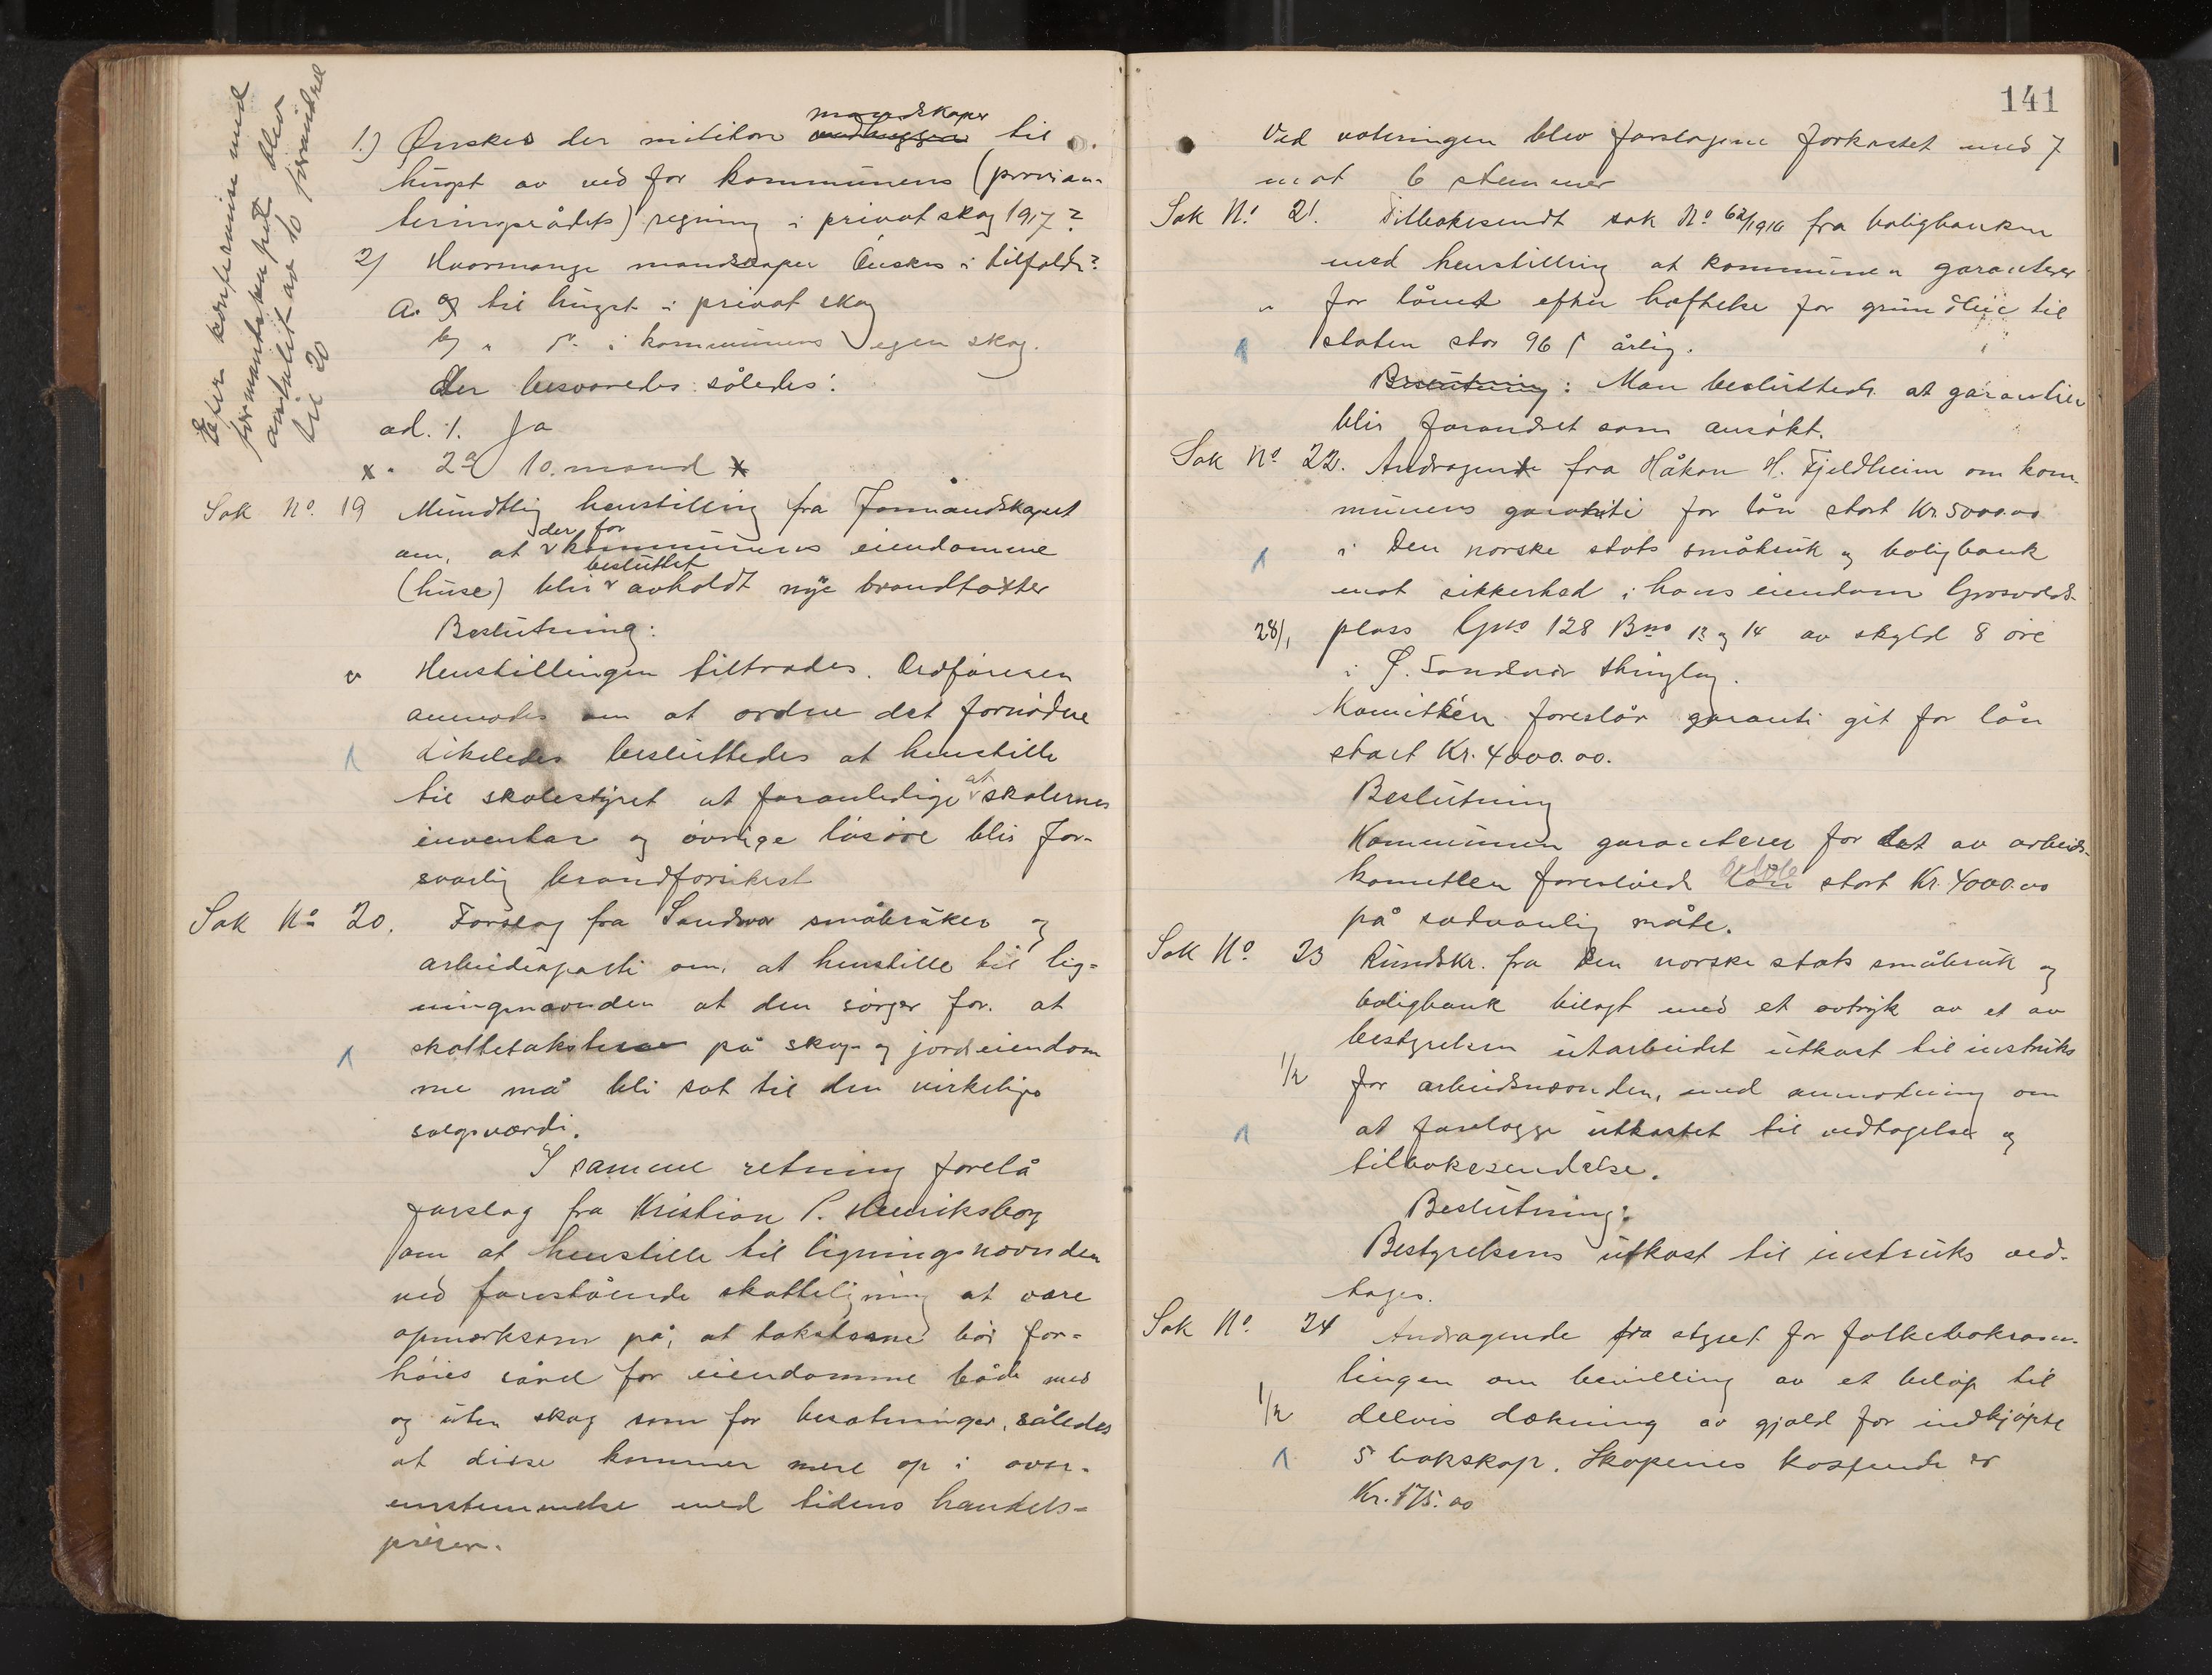 Efter konferanse med
formandskapet blev
antallet av 10 forandret
til 20
1.) Ønskes der militære vedhuggere mandskaper til
hugst av ved for kommunens (provian-
teringsrådets) regning i privat skog 1917?
2) Hvormange mandskaper ønskes i tilfælde?
a. til hugst i privat skog
b) " " i kommunens egen skog.
Der besvaredes således:
ad. 1. Ja
x " 2a 10. mand x
Sak No. 19 Mundtlig henstilling fra Formandskapet
om, at der for kommunens eiendomme
(huse) blir besluttet avholdt nye brandtakster
Beslutning:
Henstillingen tiltrædes. Ordføreren
anmodes om at ordne det fornødne
Likeledes besluttedes at henstille
til skolestyret at foranledige at skolernes
inventar og øvrige løsøre blir for-
svarlig brandforsikret
Sak No 20. Forslag fra Sandsvær småbruker og
arbeiderparti om, at henstille til lig-
ningsnævnden at den sørger for. at
skattetaksterne på skog- og jordeiendom
me må bli sat til den virkelige
salgsværdi.
I samme retning forelå
forslag fra Kristian P. Henriksborg
om at henstille til ligningsnævnden
ved forestående skatteligning at være
opmerksom på, at taksterne bør for-
høies såvel for eiendomme både med
og uten skog som for besætninger, således
at disse kommer mere op i over-
ensstemmelse med tidens handels-
priser.
141
Ved voteringen blev forslagene forkastet med 7
mot 6 stemmer
Sak No. 21. Tilbakesendt sak No 62/1916 fra boligbanken
med henstilling at kommunen garanterer
for lånet efter heftelse for grundleie til
staten stor 96 årlig.
Beslutning: Man besluttede at garantien
blir forandret som ansøkt.
Sak No 22. Andragende fra Håkon H. Fjeldheim om kom-
munens garanti for lån stort Kr. 5000.00
i Den norske stats småbruk og boligbank
mot sikkerhed i hans eiendom Grosvolds-
28/1 plass Gno 128 Bno 13 og 14 av skyld 8 øre
i Ø. Sandsvær thinglag.
Komitéen foreslår garanti git for lån
stort Kr. 4000.00.
Beslutning
Kommunen garanterer for det av arbeids-
komiteen foreslåede lån beløp stort Kr. 4000.00
på sædvanlig måte.
Sak No 23 Rundskr. fra Den norske stats småbruk og
boligbank bilagt med et avtryk av et av
bestyrelsen utarbeidet utkast til instruks
1/2 for arbeidsnævnden, med anmodning om
at forelægge utkastet til vedtagelse og
tilbakesendelse.
Beslutning:
Bestyrelsens utkast til instruks ved-
tages.
Sak No. 24 Andragende fra styret for folkeboksam-
lingen om bevilling av et beløp til
1/2 delvis dækning av gjæld for indkjøpte
5 bokskap. Skapenes kostende er
Kr. 175.00